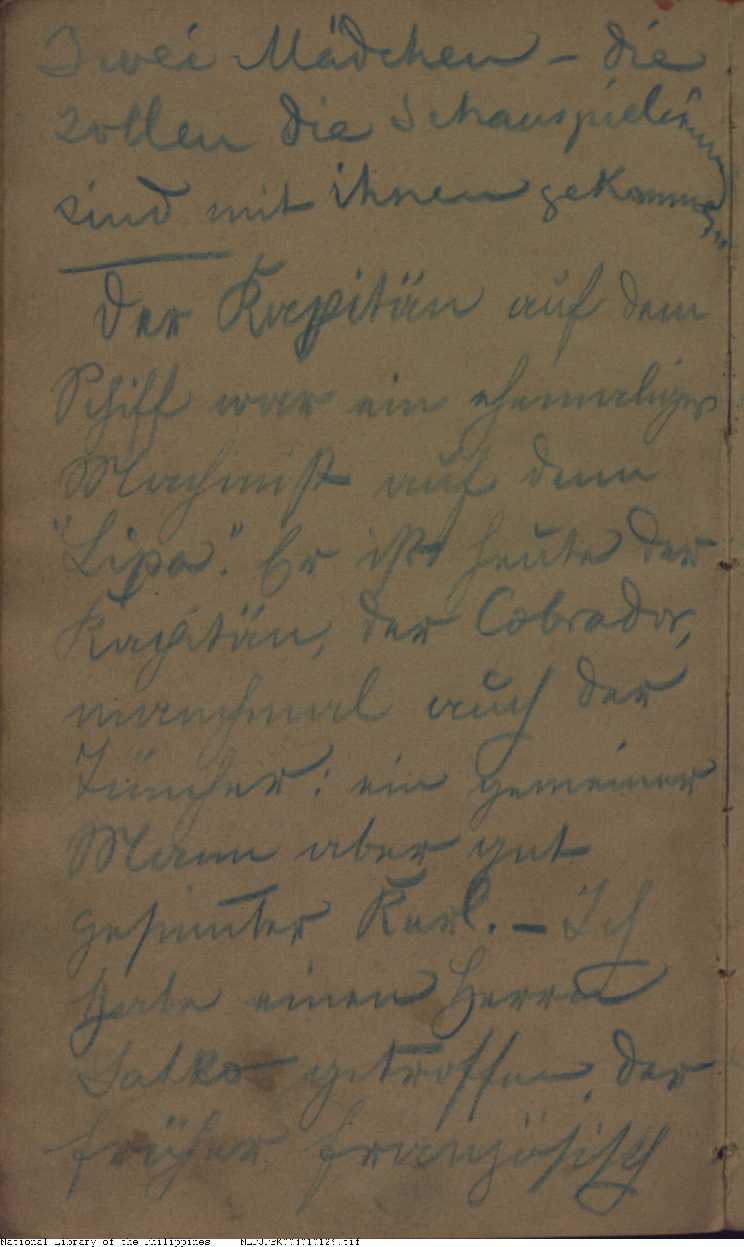 Zwei Mädchen – die
sollen die Schauspielerinnen
sind mit ihnen gekommen
Der Kapitän auf dem
Schiff war ein ehemaliger
Machinist auf dem
"Lipa". Er ist heute der
Kapitän, der Cobrador,
manchmal auch der
Tüncher: ein gemeiner
Mann aber gut
gesinnter Kerl. – Ich
habe einen Herrn
getroffen, der
früher französisch
National Library of the Philippines